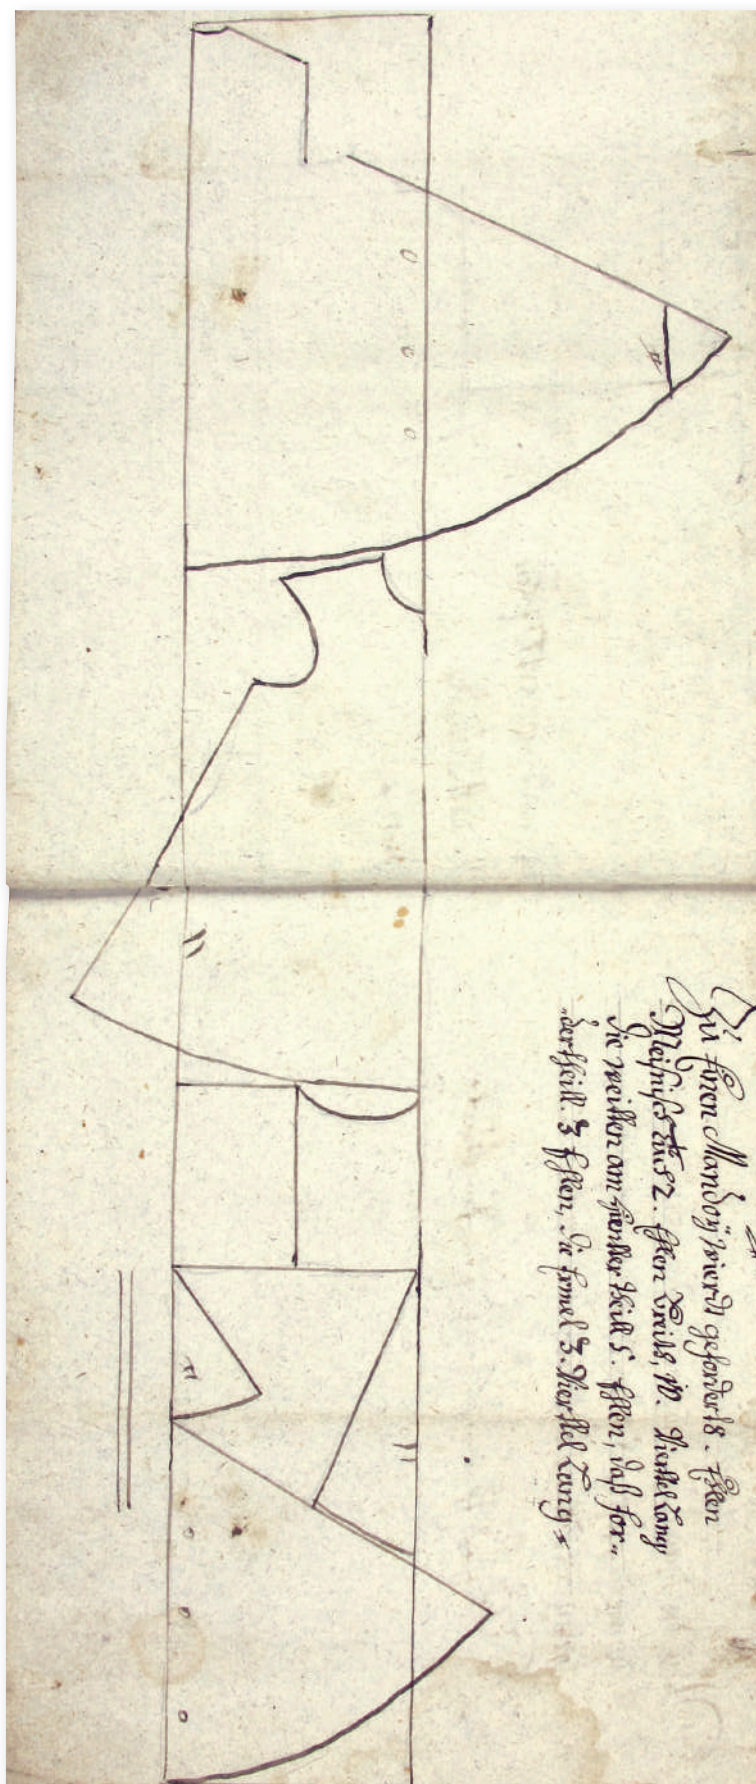 Zu Einen Mandoÿ wierd gefordert 8. Ehlen
Meichsisch 2. Ehlen Breith, 10. Vierthel Lang
die weitten am hinder theill 5. Ehlen, daß for„
„dertheill 3 Ehlen, die Ermel 3. Vierthel Lang